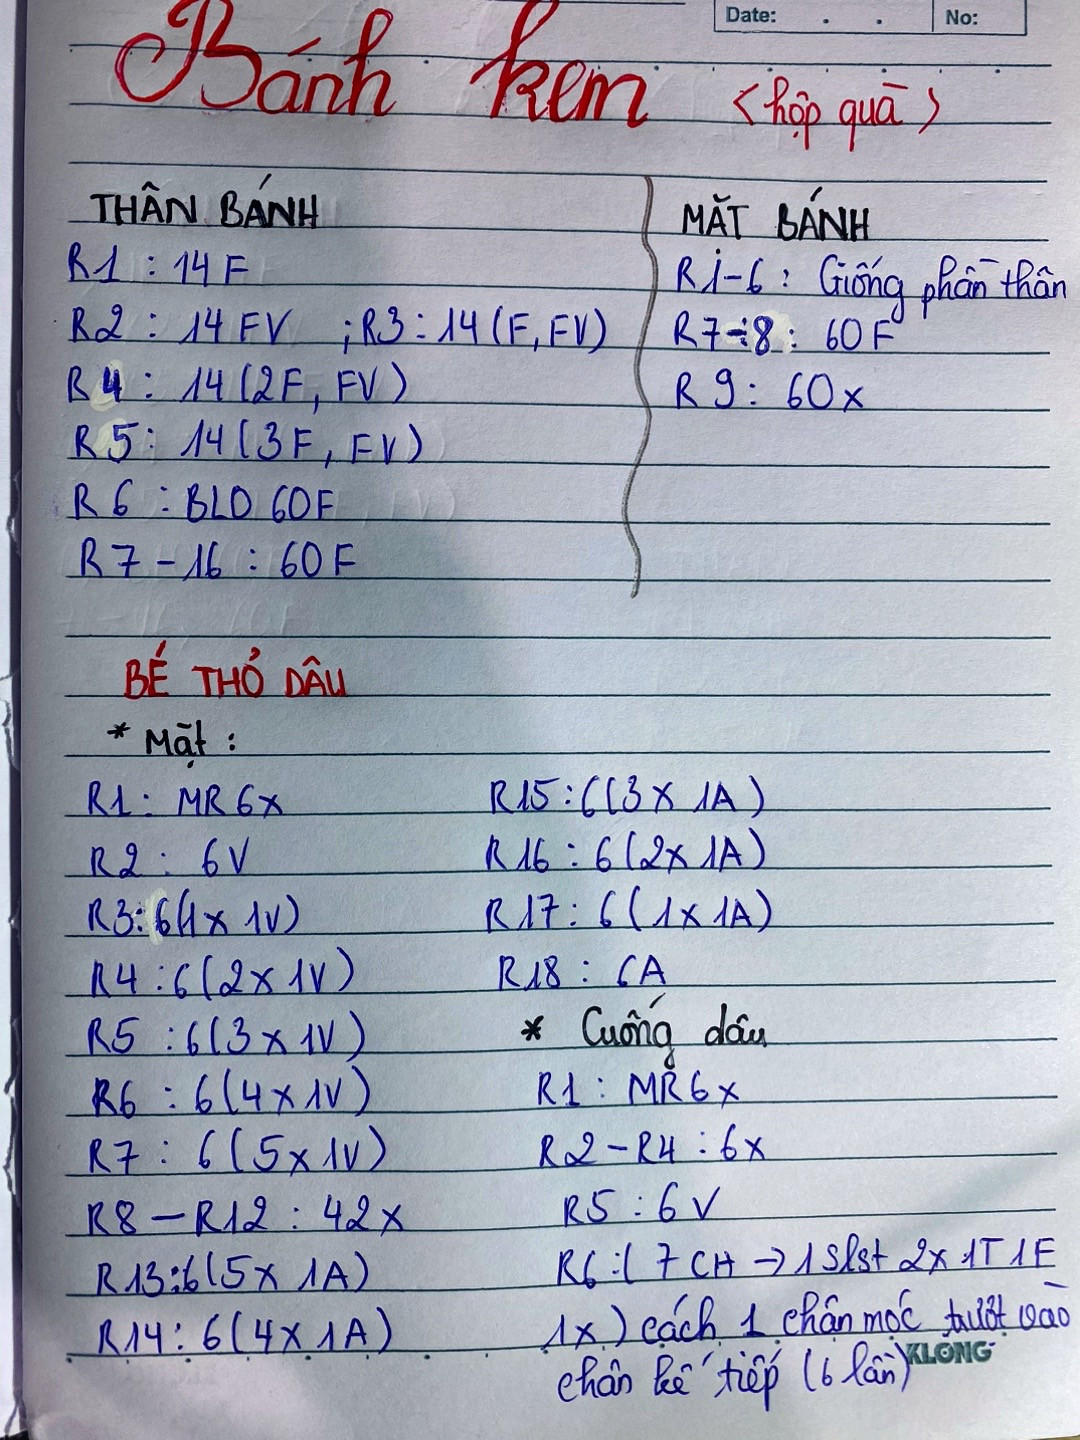 Date: . . No:
Bánh kem <hộp quà>
THÂN BÁNH
R1 : 14F
R2 : 14FV ; R3 : 14(F, FV)
R4 : 14(2F, FV)
R5 : 14(3F, FV)
R6 : BLO 60F
R7 - 16 : 60F
MẶT BÁNH
R1-6 : Giống phần thân
R7-8 : 60F
R9 : 60x
BÉ THỎ DÂU
* Mặt :
R1 : MR6x
R2 : 6V
R3 : 6(1x 1V)
R4 : 6(2x 1V)
R5 : 6(3x 1V)
R6 : 6(4x 1V)
R7 : 6(5x 1V)
R8 - R12 : 42x
R13 : 6(5x 1A)
R14 : 6(4x 1A)
R15 : 6(3x 1A)
R16 : 6(2x 1A)
R17 : 6(1x 1A)
R18 : 6A
* Cuống dâu
R1 : MR6x
R2 - R4 : 6x
R5 : 6V
R6 : ( 7CH → 1Slst 2x 1T 1F
1x) cách 1 chân móc trượt vào
chân kế tiếp (6 lần)
KLONG